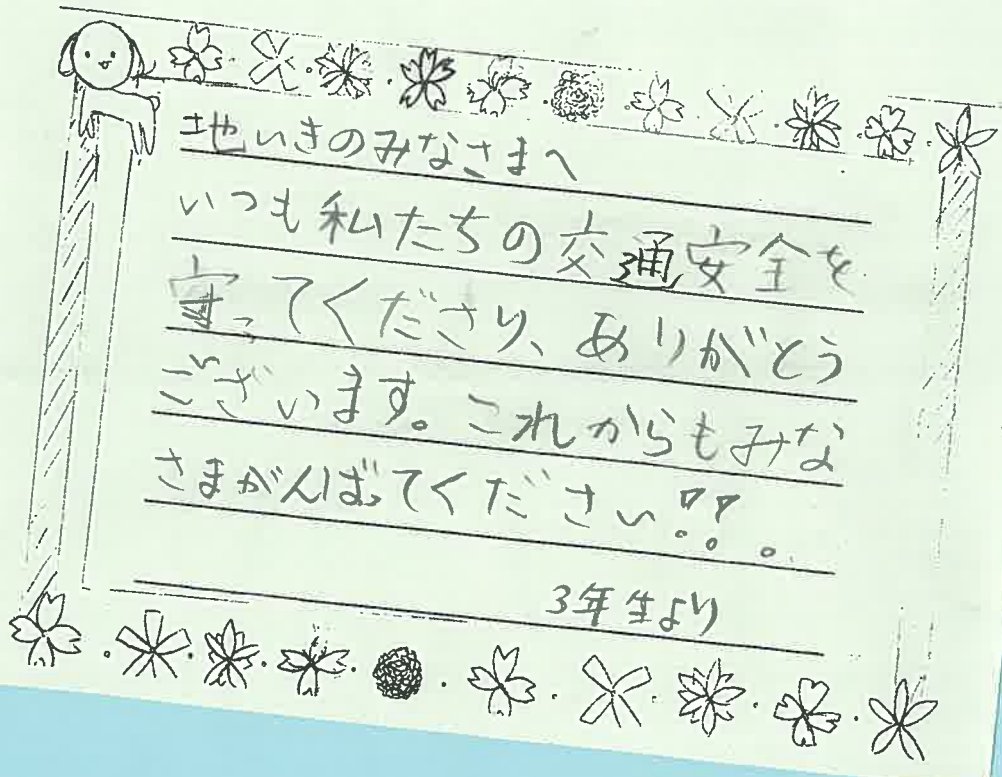 地いきのみなさまへ
いつも私たちの交通安全を
守ってくださり、ありがとう
ございます。これからもみな
さまがんばってください!!。
3年生より